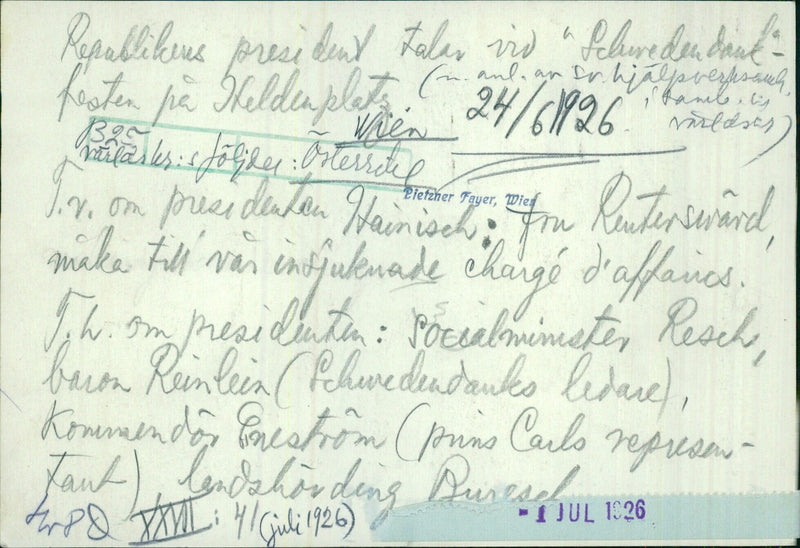 Republikens president talar vid "Schwedendank"-
festen på Heldenplatz
(m. anl. av Sv. hjälpverksamh.
i samb. m.
världskr)
Wien 24/6 1926.
B 325
världskr:s följder: Österrike
Pietzner Fayer, Wien
T.v. om presidenten Hainisch: fru Reuterswärd,
maka till vår insjuknade chargé d'affaires.
T.h. om presidenten: Socialminister Resch,
baron Reinlein (Schwedendanks ledare),
Kommendör Eneström (prins Carls represen-
tant) landshövding Buresch
XXVII: 41 (juli 1926)
-1 JUL 1926